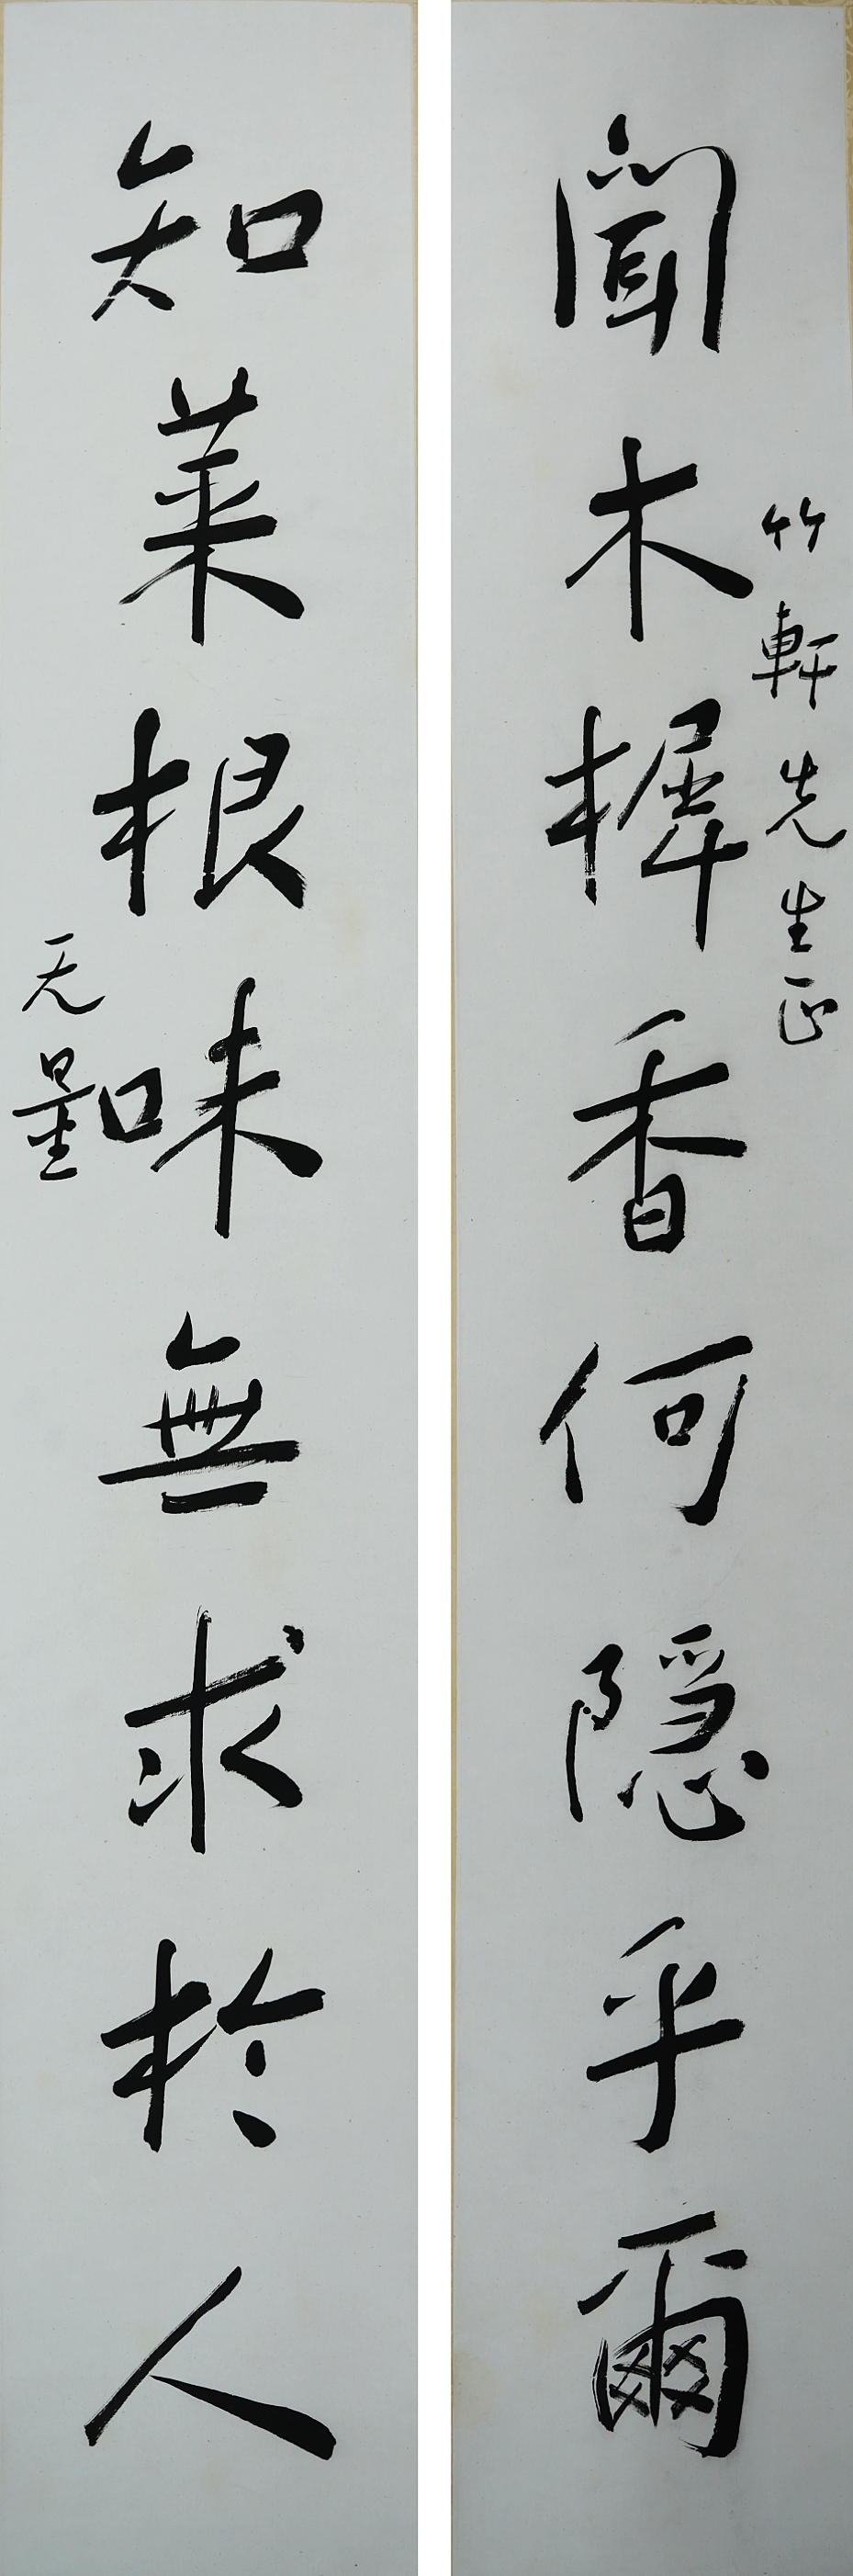 竹軒先生正
聞木樨香何隱乎爾
知菜根味無求於人
无量